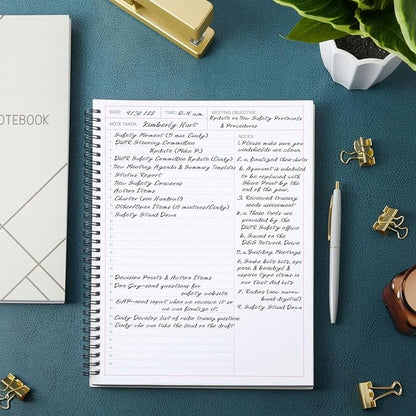 NOTEBOOK
DATE: 4/30/22 TIME: 8-9 am MEETING OBJECTIVE:
Update on New Safety Protocols
& Procedures
NOTE TAKER: Kimberly Hart
Safety Moment (5 min Cindy)
DWR Steering Committee
Update (Mike P.)
DWR Safety Committee Update (Cindy)
New Meeting Agenda & Summary Templates
Status Report
New Safety Concerns
Action Items
Charter (see Handout)
Other/Open Items (10 minutes/Cindy)
Safety Stand Down
Decision Points & Action Items
Don Guy-send questions for
safety website
EAP-send input when we receive it so
we can finalize it.
Cindy Develop list of radio training questions
Cindy who can take the lead on the draft
NOTES
1. Please make sure you
windshields are clean.
2. a. finalized the charter
b. Agreement is scheduled
to be replaced with
Share Point by the
end of the year.
3. Reviewed training
needs assessment
b. c. These tools are
provided by the
DWR Safety office
b. Saved on the
D&S Network Drive
5. a. Building Meetings
b. Snake bite kits, epi
pens, & benadryl &
aspirin type items in
our First Aid kits
7. Radios (new narrow
band digital)
9. Safety Stand Down